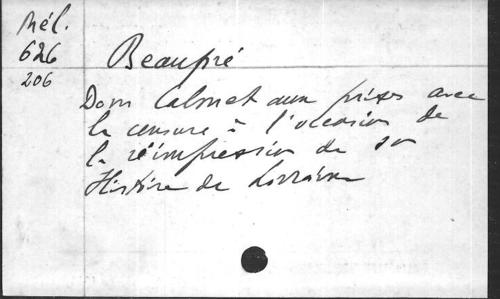 Mél.
626
206
Beaupré
Dom Calmet aux prises avec
la censure à l'occasion de
la réimpression de son
Histoire de Lorraine